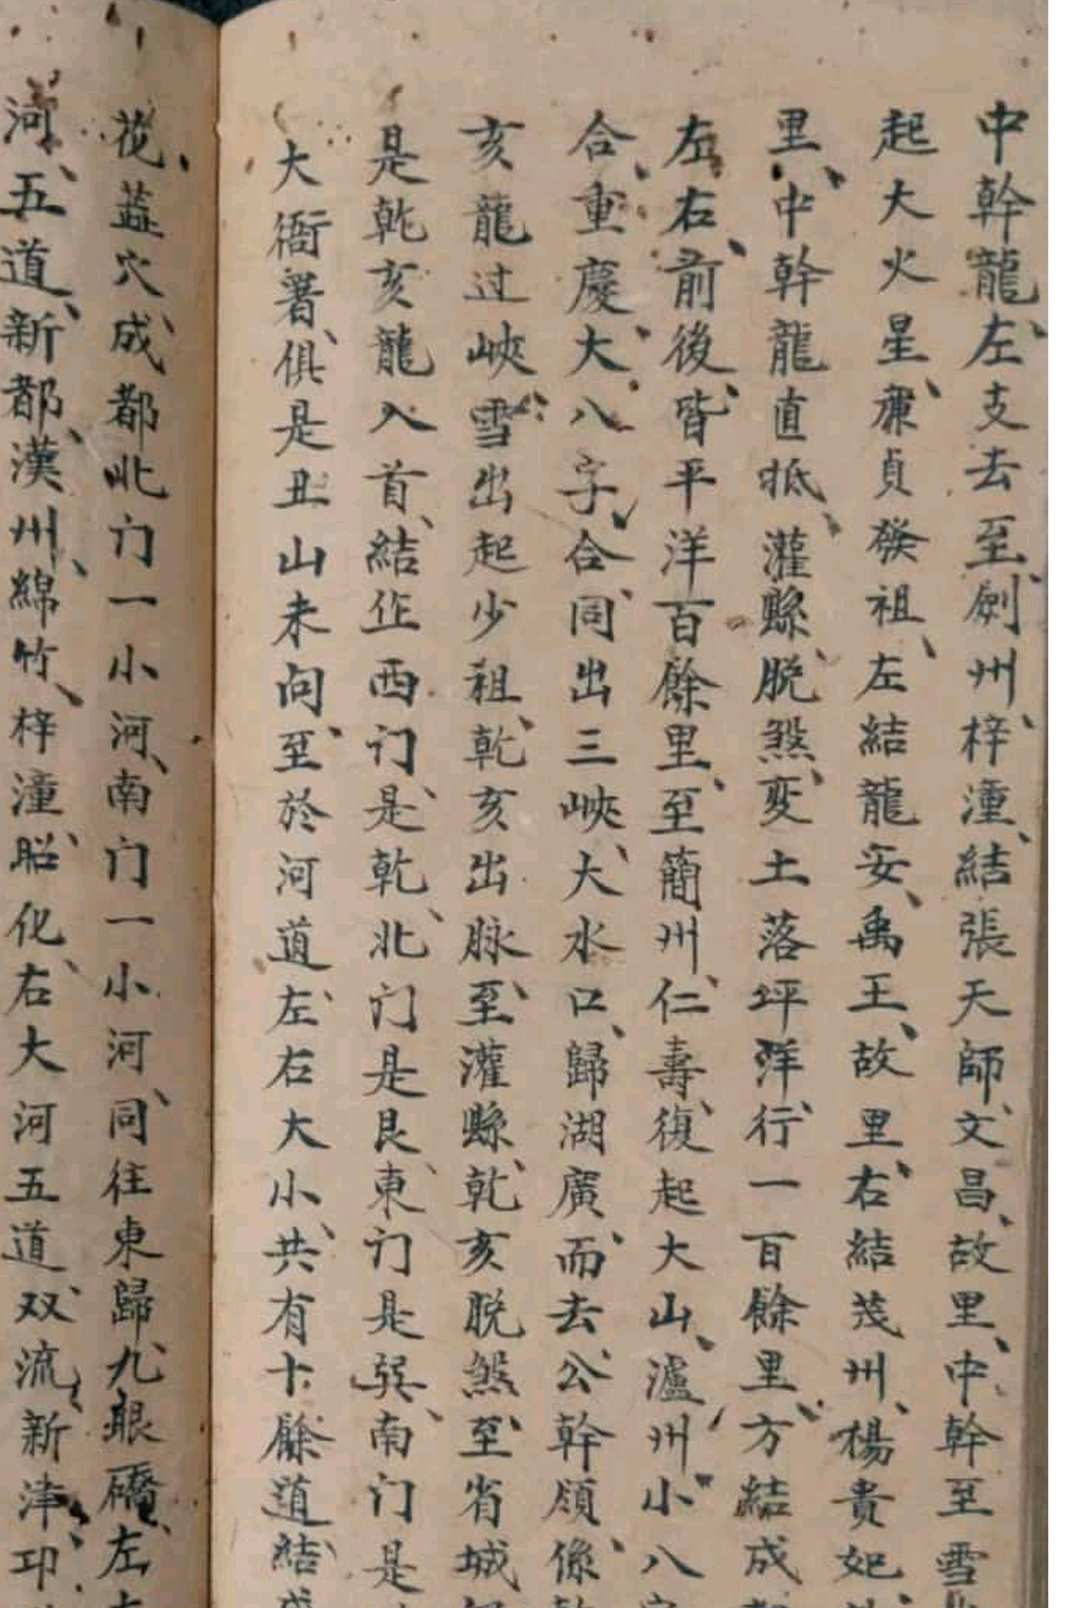 中幹龍左支去至劍州梓潼結張天師文昌故里中幹至雪
起大火星廉貞發祖左結龍安禹王故里右結茂州楊貴妃
里中幹龍直抵灌縣脫煞变土落坪洋行一百餘里方結成
左右前後皆平洋百餘里至簡州仁壽復起大山瀘州小八
合重慶大八字合同出三峽大水口歸湖廣而去公幹頎係
亥龍过峽雪出起少祖乾亥出脉至灌縣乾亥脱煞至省城
是乾亥龍入首結作西门是乾北门是艮東门是巽南门是
大衙署俱是丑山未向至於河道左右大小共有十餘道結
花蓝穴成都北门一小河南门一小河同往東歸九眼礄左
河五道新都漢州綿竹梓潼昭化右大河五道双流新津邛